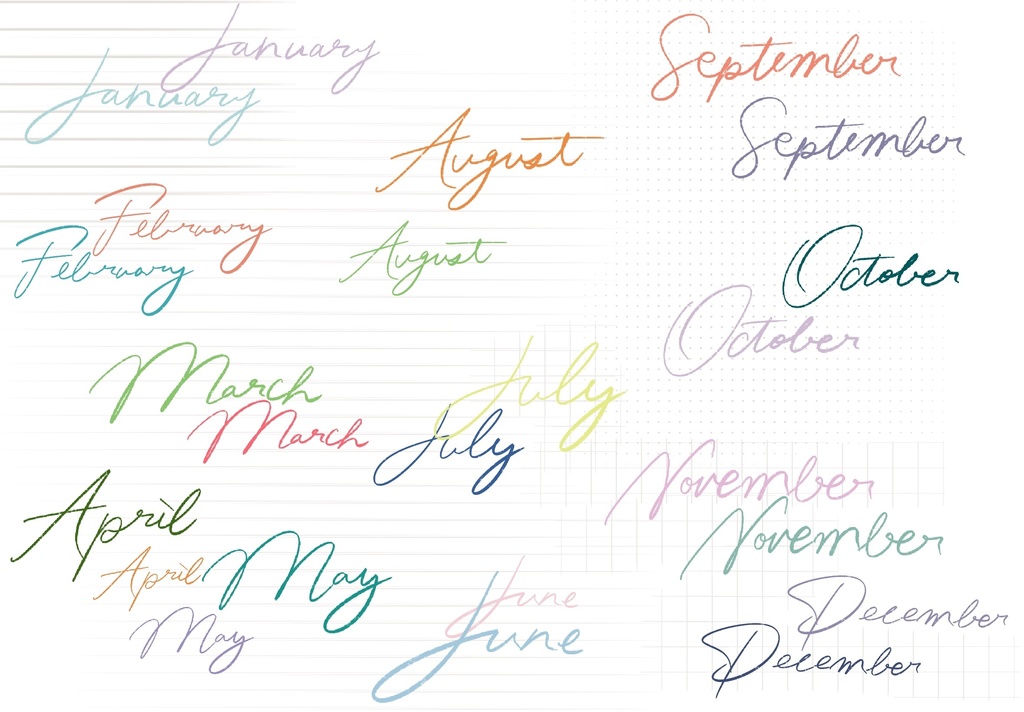 January
January
February
February
March
March
April
April
May
May
August
August
July
July
June
June
September
September
October
October
November
November
December
December